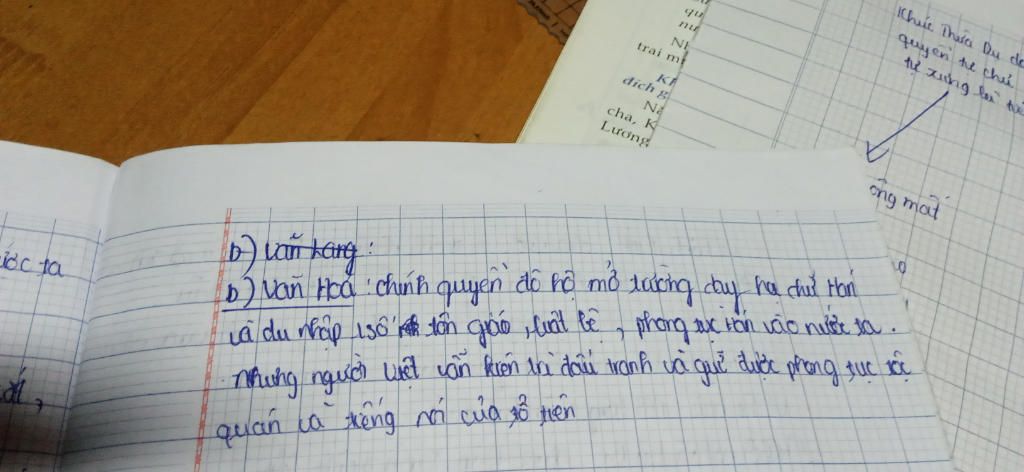 b) Văn Lang :
b) Văn Hoá : chính quyền đô hộ mở trường dạy học chữ Hán
và du nhập 1 số tôn giáo, luật lệ, phong tục Hán vào nước ta.
nhưng người việt vẫn kiên trì đấu tranh và giữ được phong tục tập
quán và tiếng nói của tổ tiên
ước ta
Khúc Thừa Dụ
quyền tự chủ
tự xưng
ông mất
qu
nư
trai m
đích g
cha, K
Lương